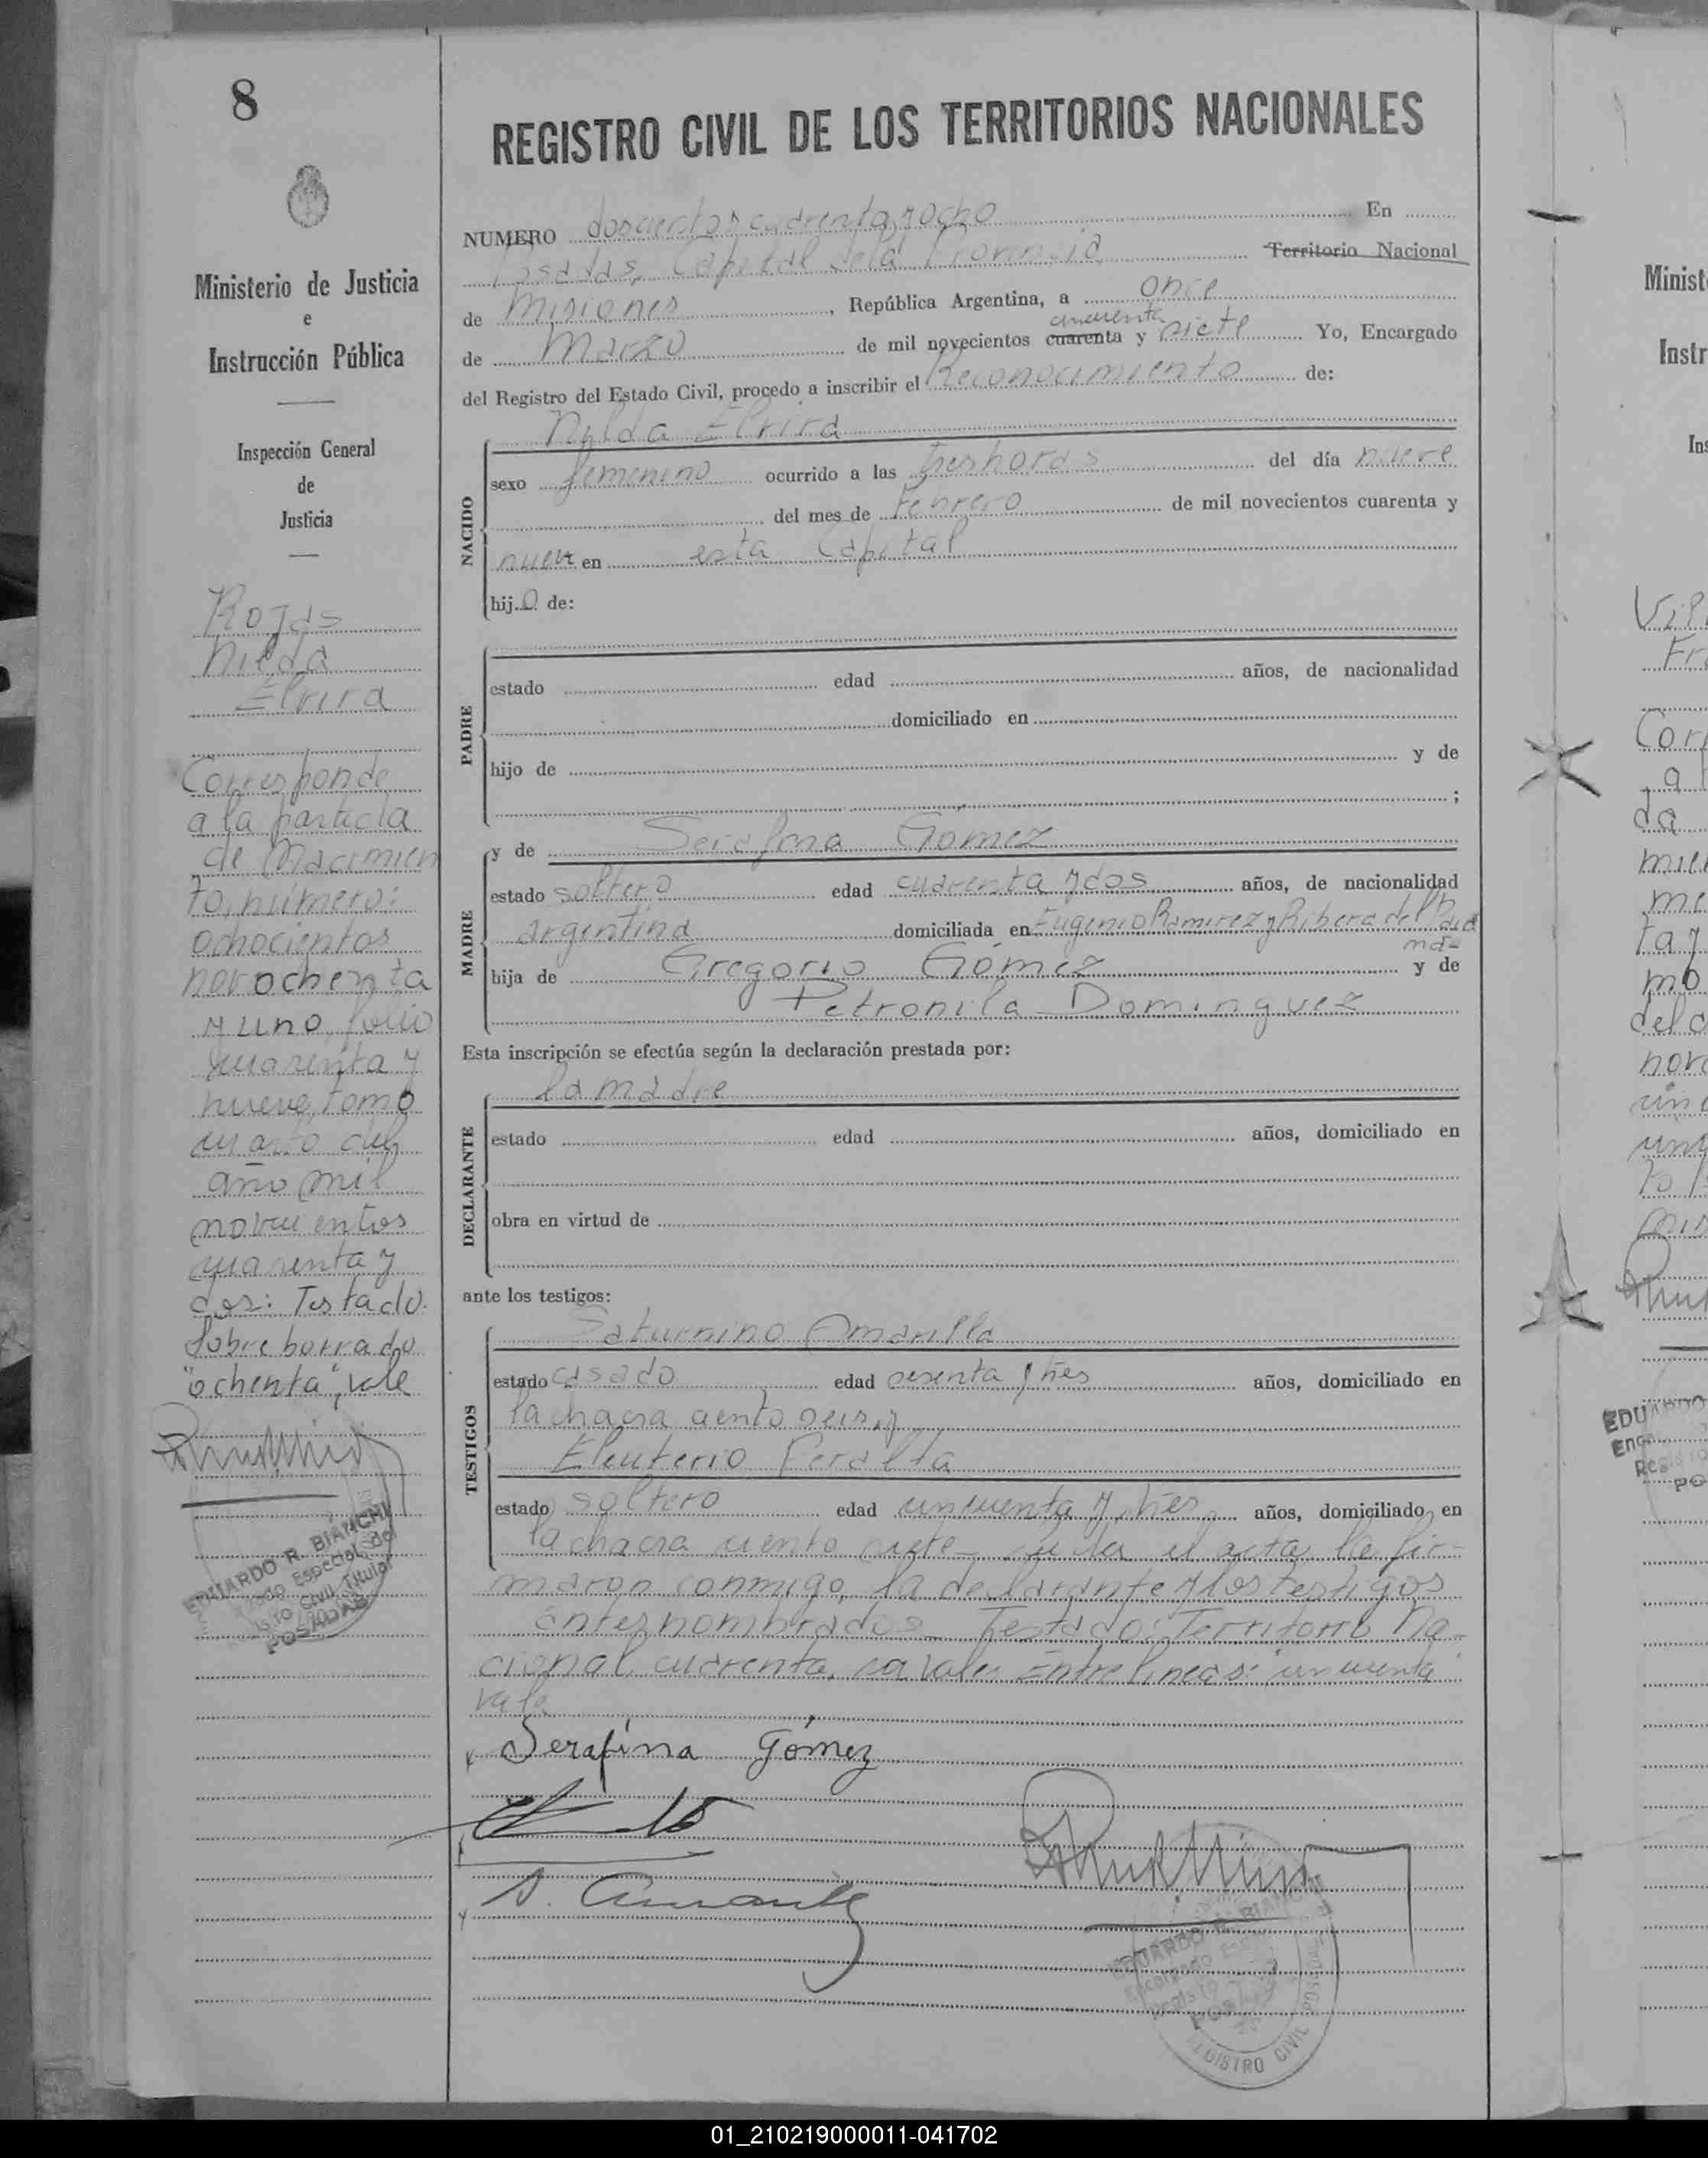 8
Ministerio de Justicia
e
Instrucción Pública
Inspección General
de
Justicia
Rojas
Nilda
Elvira
Corresponde
a la partida
de Nacimien
to, número:
ochocientos
novochenta
y uno, folio
cuarenta y
nueve, tomo
cuarto del
año mil
novecientos
cuarenta y
dos: Testado.
Sobre borrado
"ochenta", vale
EDUARDO R. BIANCHI
POSADAS
REGISTRO CIVIL DE LOS TERRITORIOS NACIONALES
NUMERO doscientos cuarenta y ocho En
Posadas, Capital de la Provincia Territorio Nacional
de Misiones, República Argentina, a once
cincuenta
de Marzo de mil novecientos cuarenta y siete Yo, Encargado
del Registro del Estado Civil, procedo a inscribir el Reconocimiento de:
NACIDO
Nilda Elvira
sexo femenino ocurrido a las tres horas del día nueve
del mes de Febrero de mil novecientos cuarenta y
nueve en esta Capital
hij.a de:
PADRE
estado edad años, de nacionalidad
domiciliado en
hijo de y de
;
MADRE
y de Serafina Gómez
estado soltero edad cuarenta y dos años, de nacionalidad
argentina domiciliada en Eugenio Ramirez y Ribera del Para
ná-
hija de Gregorio Gómez y de
Petronila Dominguez
Esta inscripción se efectúa según la declaración prestada por:
DECLARANTE
la madre
estado edad años, domiciliado en
obra en virtud de
ante los testigos:
TESTIGOS
Saturnino Amarilla
estado casado edad sesenta y tres años, domiciliado en
la chacra ciento seis, y
Eleuterio Peralta
estado soltero edad cincuenta y tres años, domiciliado en
la chacra ciento siete- el acta, la fir-
maron conmigo, la declarante y los testigos
antesnombrados- Testado: Territorio Na-
cional, cuarenta, Entre lineas: "cincuenta"
vale
Serafina Gómez
EDUARDO R. BIANCHI
REGISTRO CIVIL
01_210219000011-041702